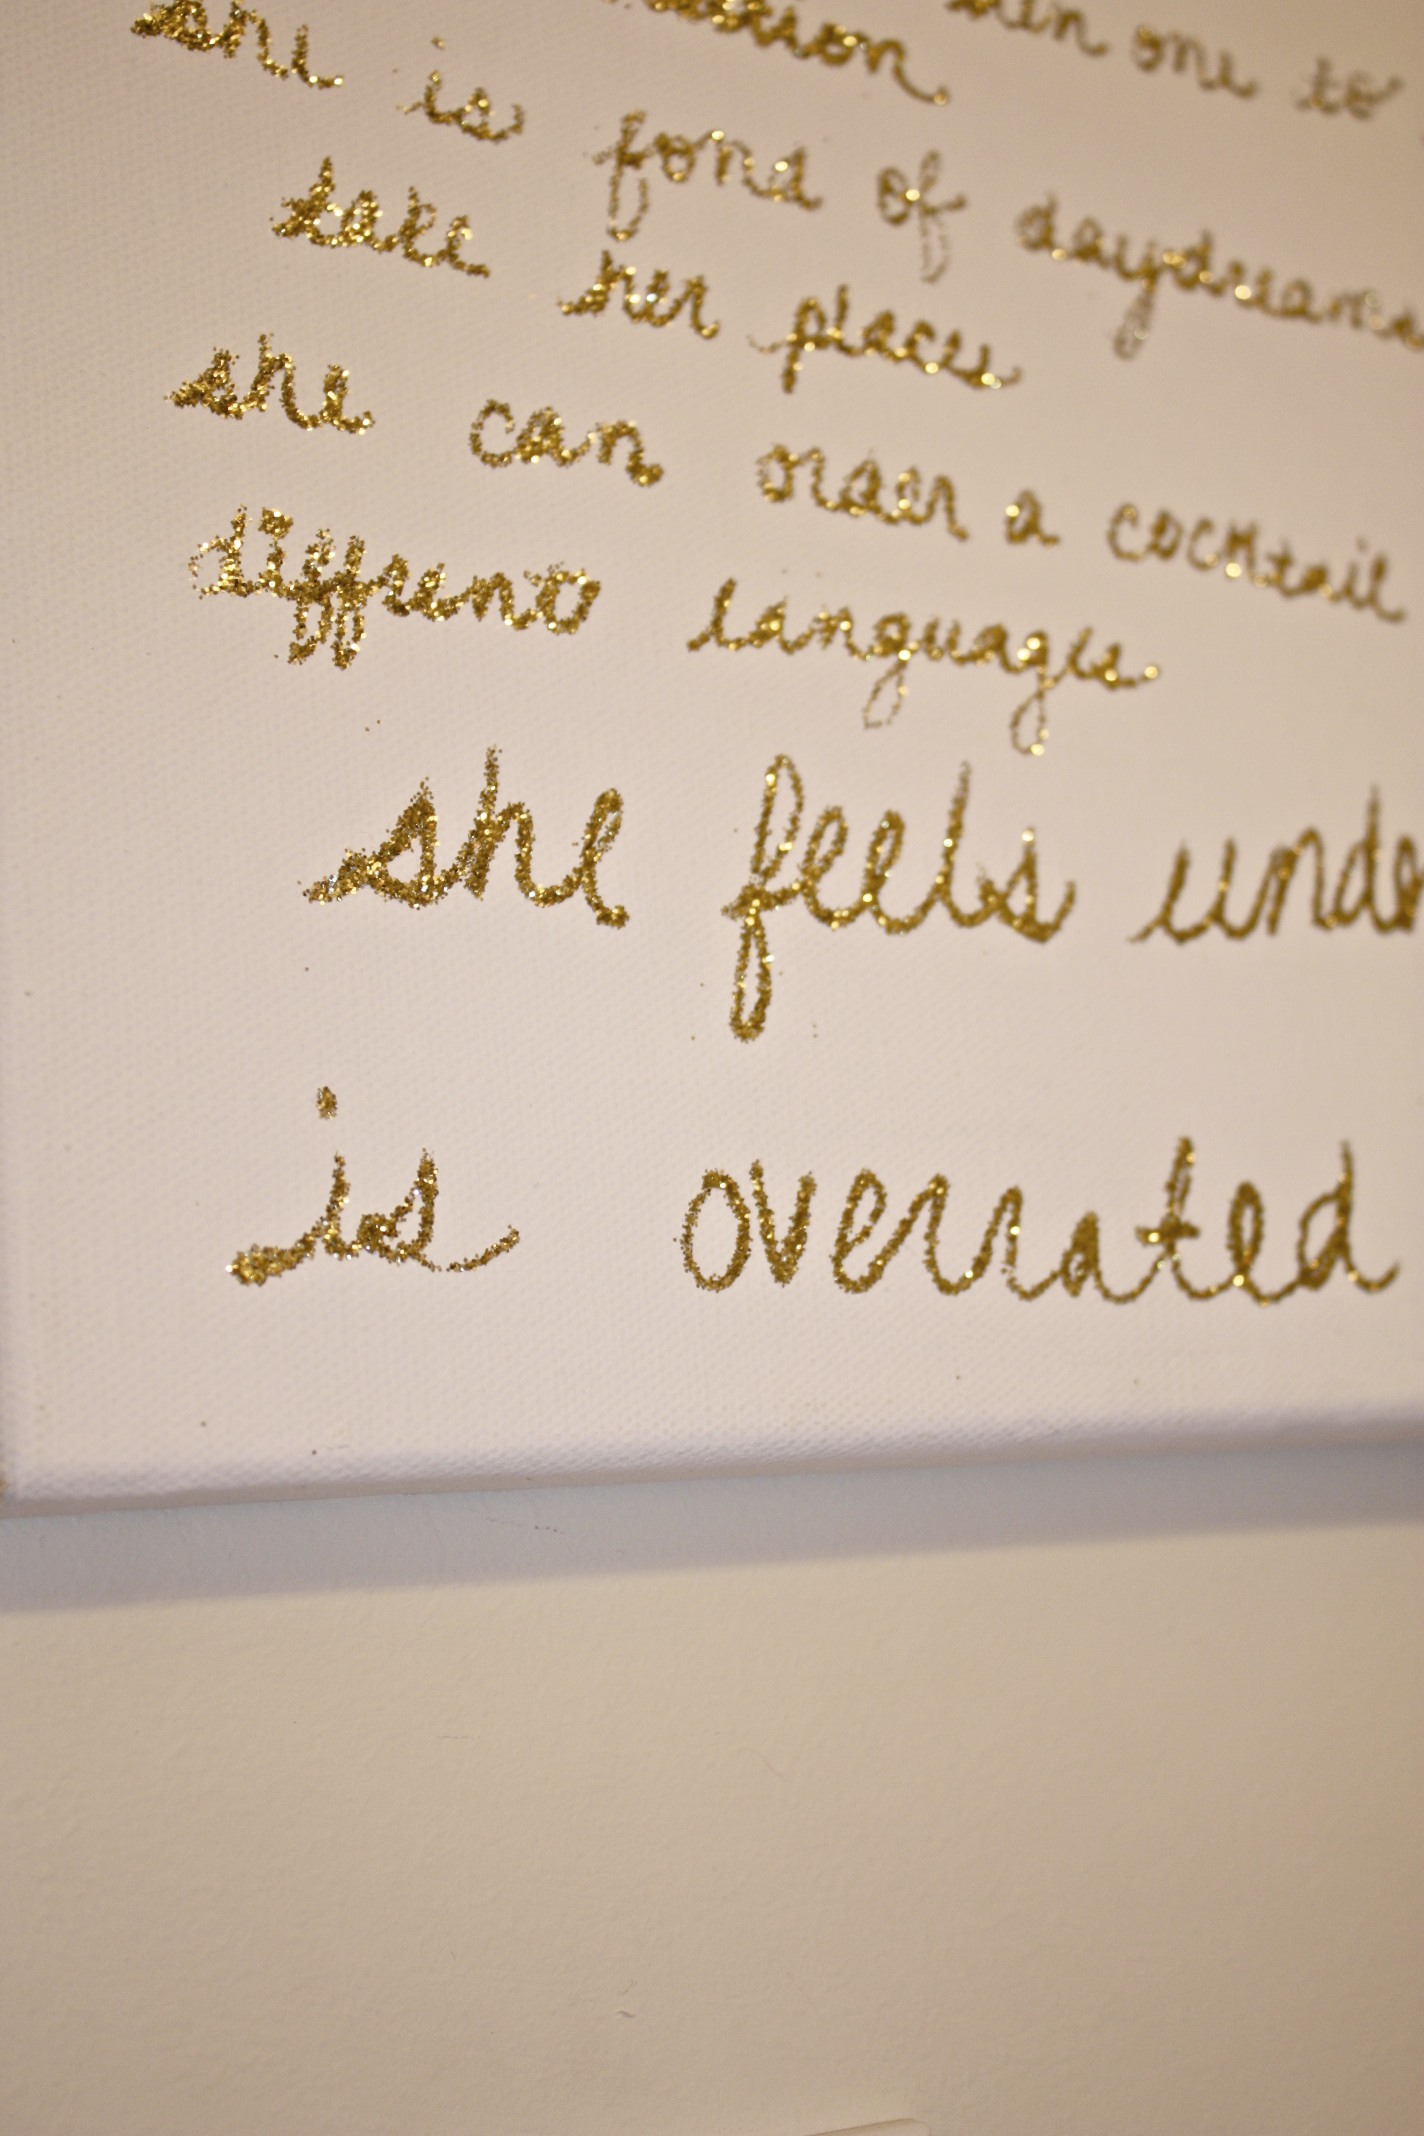 one to
she is fond of daydreams
take her places
she can order a cocktail
different languages
she feels unde
is overrated